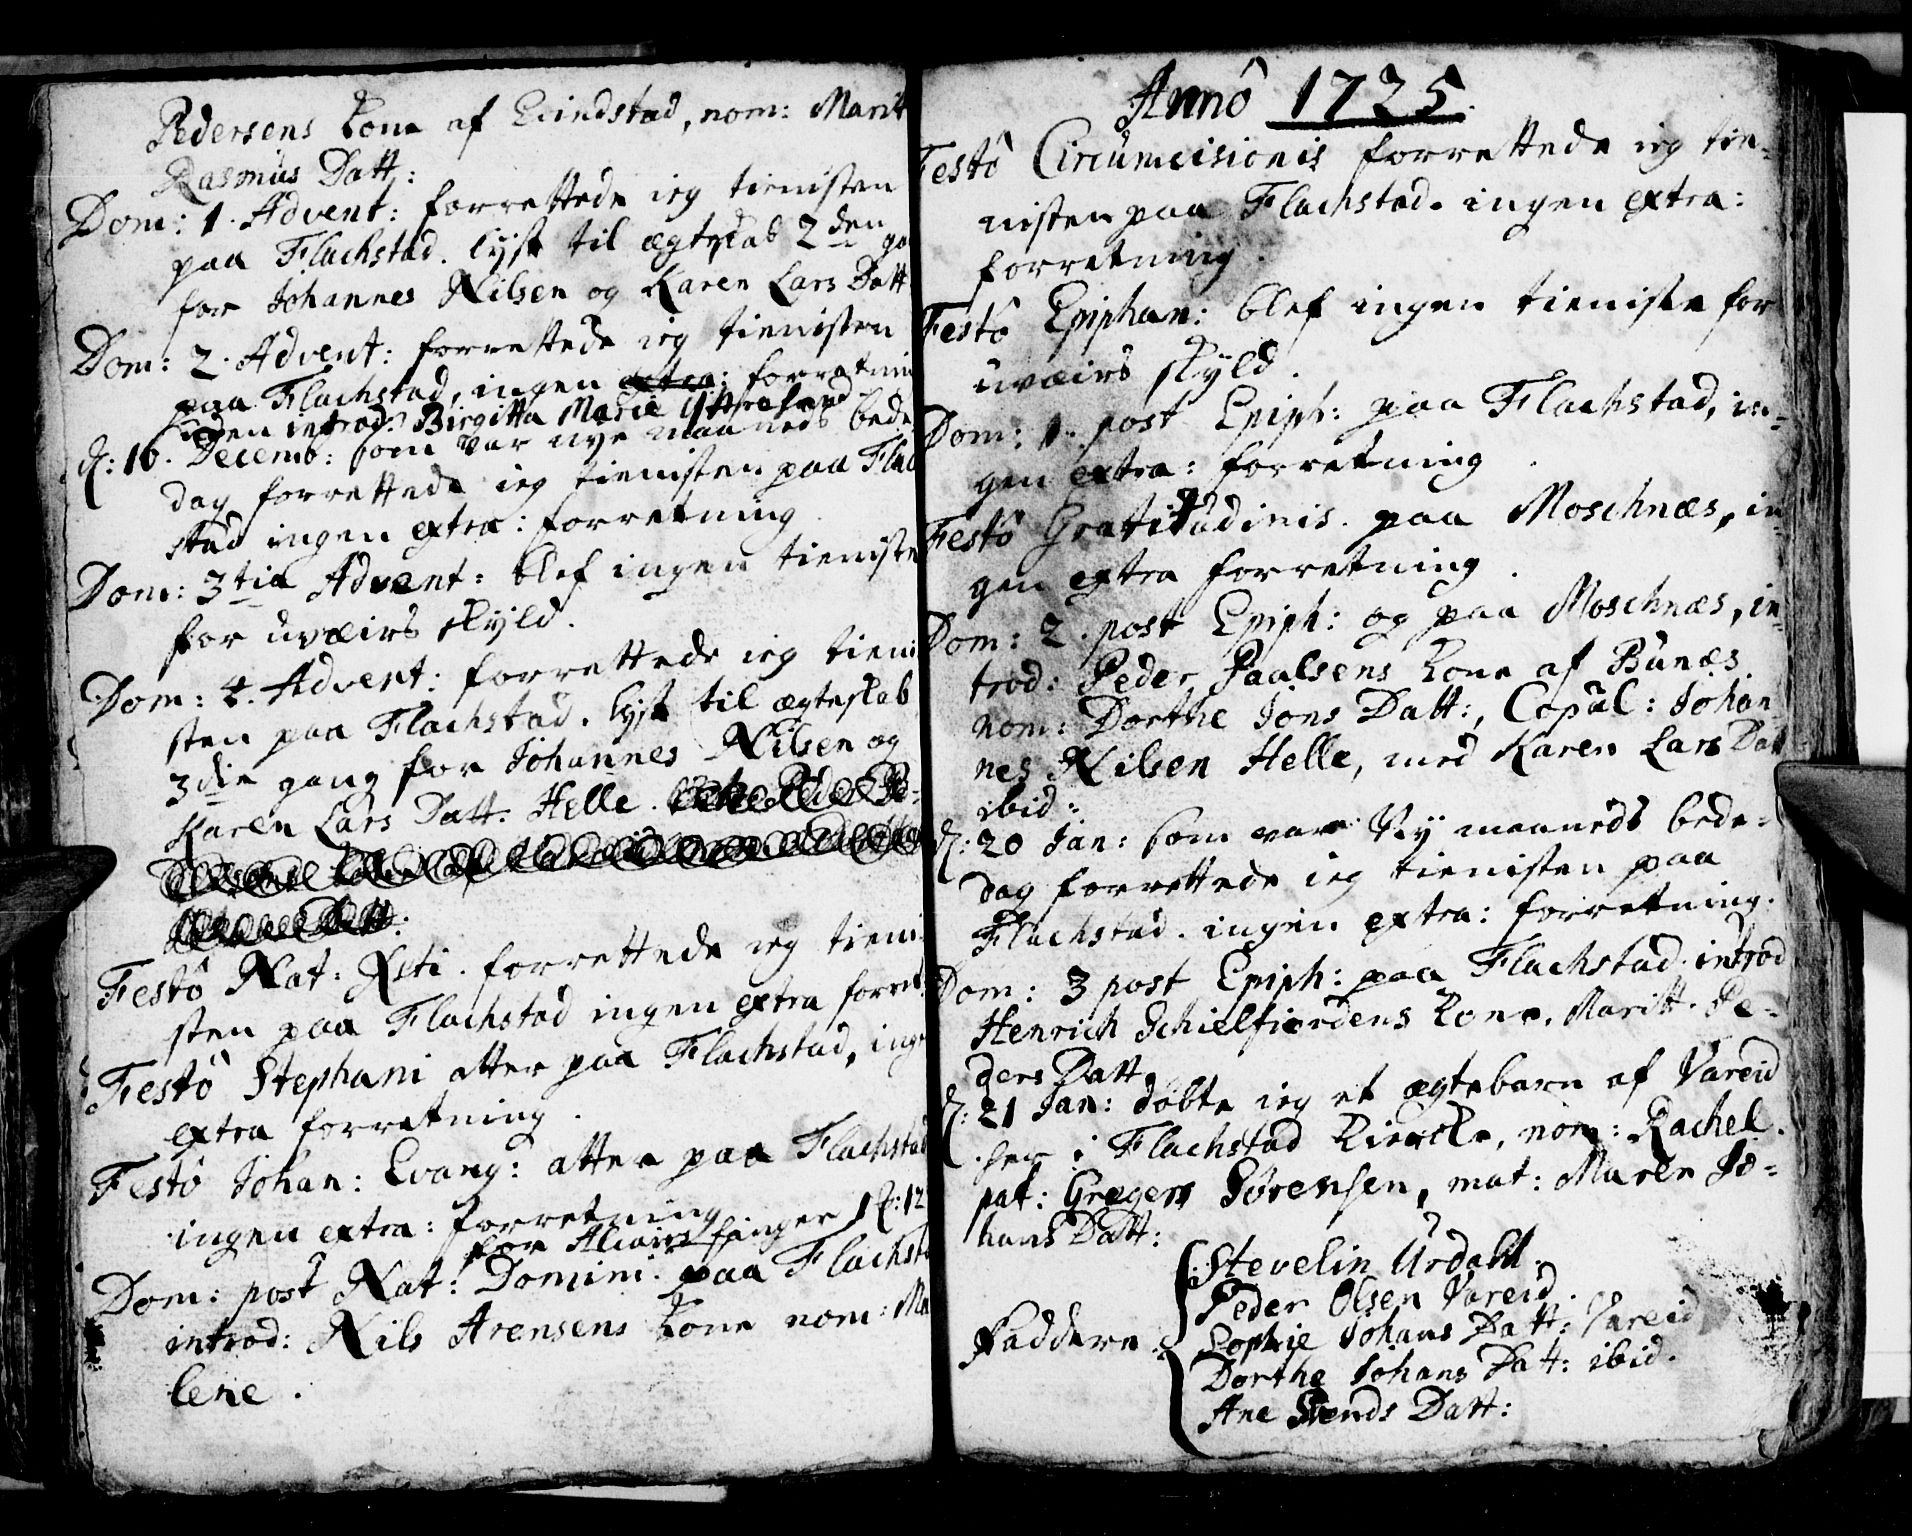 Pedersens kone af Lundstad, nom: Marit
Rasmus Datt:
Dom: 1. Advent: forrettede ieg tienisten
paa Flachstad. lyst til ægteskab 2den ga
for Johannes Nilsen og Karen Lars Datt
Dom: 2. Advent: forrettede ieg tienisten
paa Flachstad, ingen extra: forretning
uden introd: Birgitta Marie
d: 16. Decemb: som var nye maaneds bede
dag forrettede ieg tienisten paa Flach
stad ingen extra: forretning
Dom: 3tia Advent: blef ingen tieniste
for uveirs skyld.
Dom: 4. Advent: forrettede ieg tieni
sten paa Flachstad. lyst til ægteskab
3die gang for Johannes Nilsen og
Karen Lars Datt. Helle.
Festô Nat: Xsti. forrettede ieg tieni
sten paa Flachstad ingen extra forret
Festô Stephani atter paa Flachstad, inge
extra forretning.
Festô Johan: Evang: atter paa Flachstad
ingen extra: forretning
for finger 12
Dom: post Nat: Domini. paa Flachsta
introd: Nils Arensens kone nom: Ma
lene.
Annô 1725.
Festô Circumcisionis forrettede ieg tie-
nisten paa Flachstad. ingen extra:
forretning.
Festô Epiphan: blef ingen tieniste for
uveirs skyld.
Dom: 1. post Epiph: paa Flachstad, in-
gen extra: forretning
Festô Gratitudinis. paa Moschnæs, in-
gen extra forretning.
Dom: 2. post Epiph: og paa Moschnæs, in-
trod: Peder Paalsens kone af Bunæs
nom: Dorthe Jons Datt:, Copul: Johan-
nes Nilsen Helle, med Karen Lars Datt
ibid:
d: 20 Jan: som var Ny maaneds bede-
dag forrettede ieg tienisten paa
Flachstad. ingen extra: forretning.
Dom: 3 post Epiph: paa Flachstad. introd
Henrich Schielfiordens kone. Maritt. Pe-
ders Datt.
d: 21 Jan: døbte ieg et ægtebarn af Vareid
her i Flachstad Kircke, nom: Rachel.
pat: Gregers Sörensen, mat: Maren Jo-
hans Datt:
Stevelin Urdahl.
Peder Olsen Vareid.
Faddere: Sophie Johans Datt: Vareid
Dorthe Johans Datt: ibid.
Ane Svends Datt: